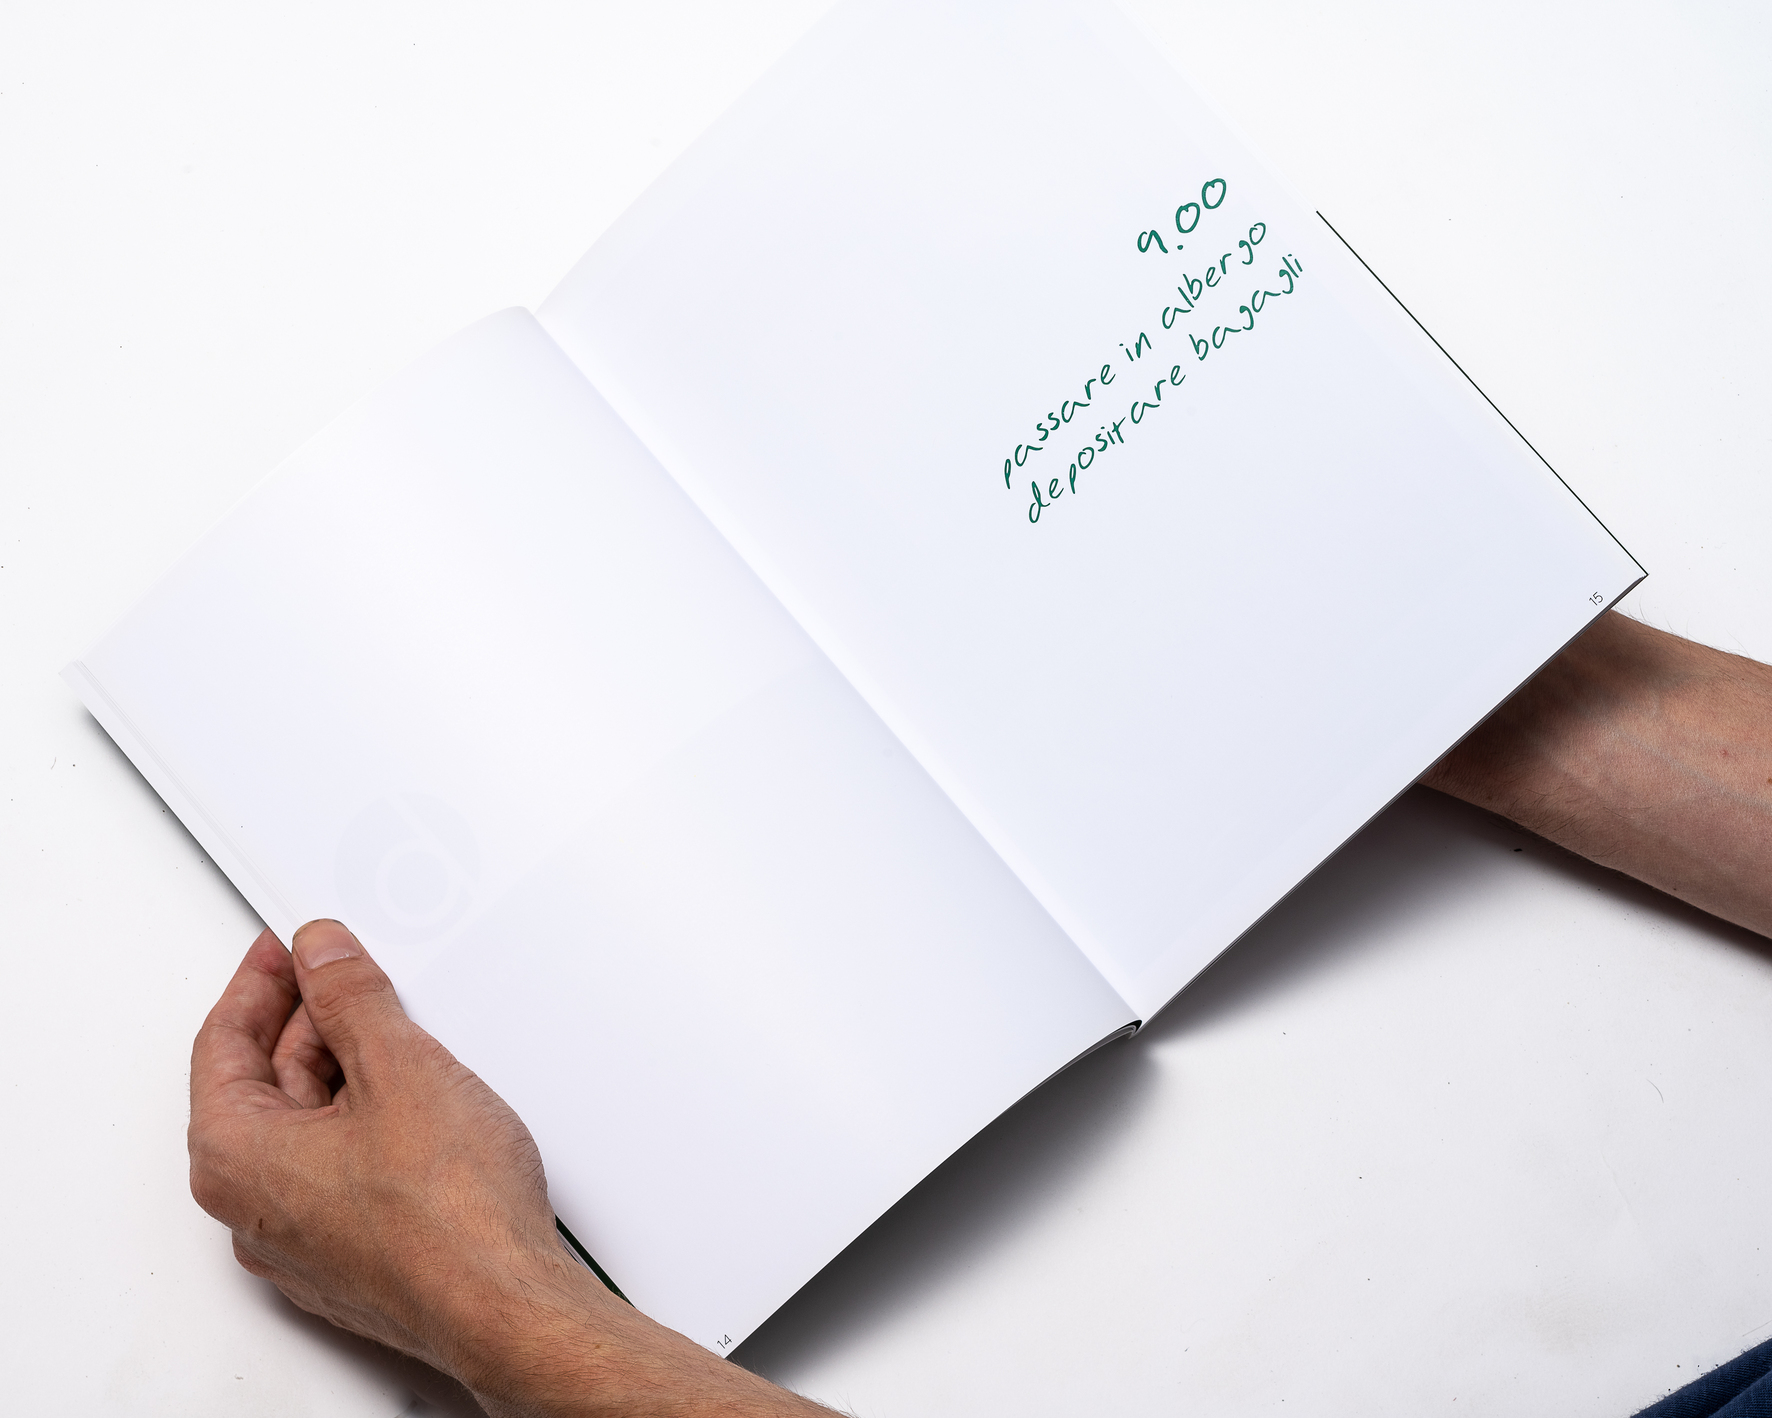 9.00
passare in albergo
depositare bagagli
15
14